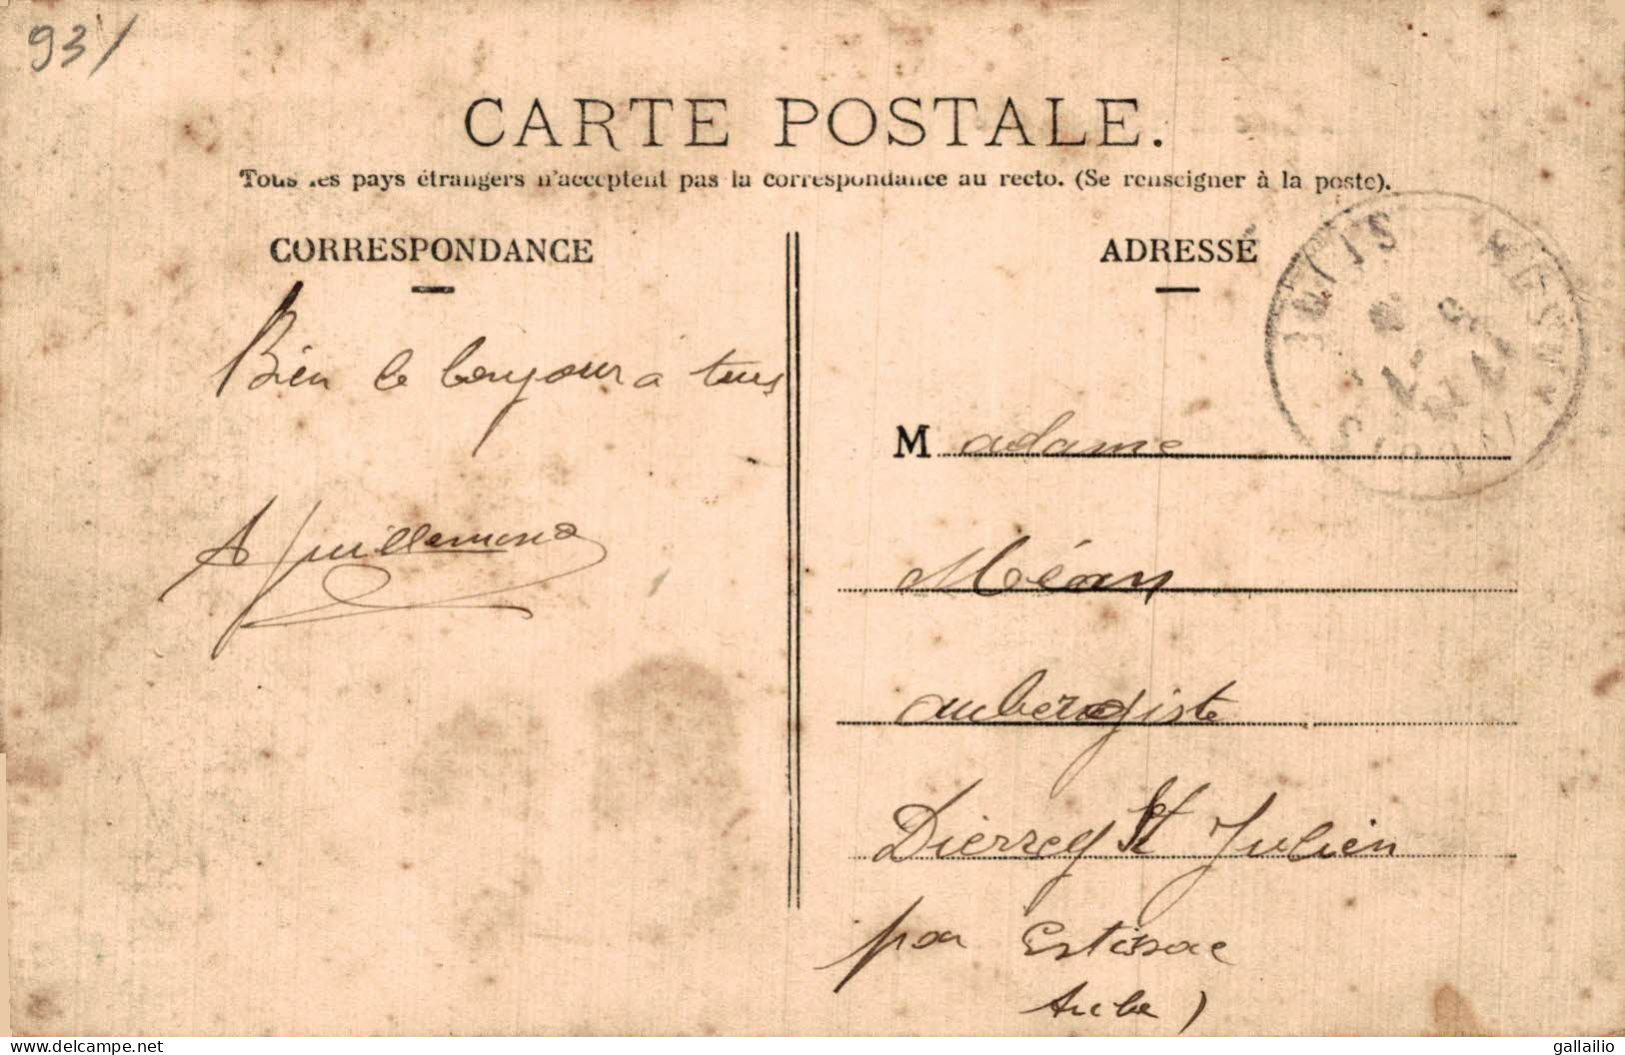 93/
CARTE POSTALE.
Tous les pays étrangers n'acceptent pas la correspondance au recto. (Se renseigner à la poste).
CORRESPONDANCE
Bien le bonjour a tous
A Guillemond
ADRESSE
Madame
Méan
aubergiste
Dierrey St Julien
par Estissac
Aube)
www.delcampe.net
gallailio